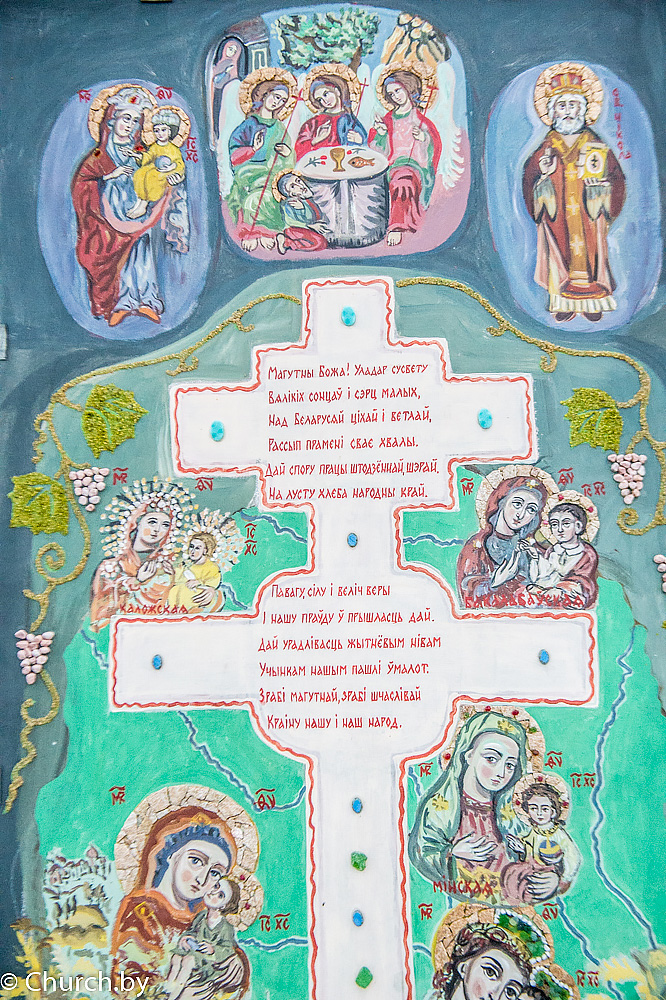 МР ѲУ
ІС ХС
Магутны Божа! Уладар сусвету
Вялікіх сонцаў і сэрц малых,
Над Беларусяй ціхай і ветлай,
Рассып прамені свае хвалы.
Дай спору працы штодзённай, шэрай,
На лусту хлеба народны край.
МР ѲУ
ІС ХС
Каложская
МР ѲУ
ІС ХС
Павагу, сілу і веліч веры
І нашу праўду ў прышласць дай.
Дай урадлівасць жытнёвым нівам
Учынкам нашым пашлі ўмалот.
Зрабі магутнай, зрабі шчаслівай
Краіну нашу і наш народ.
МР ѲУ
ІС ХС
МР ѲУ
ІС ХС
Мінская
МР ѲУ
ІС ХС
© Church.by